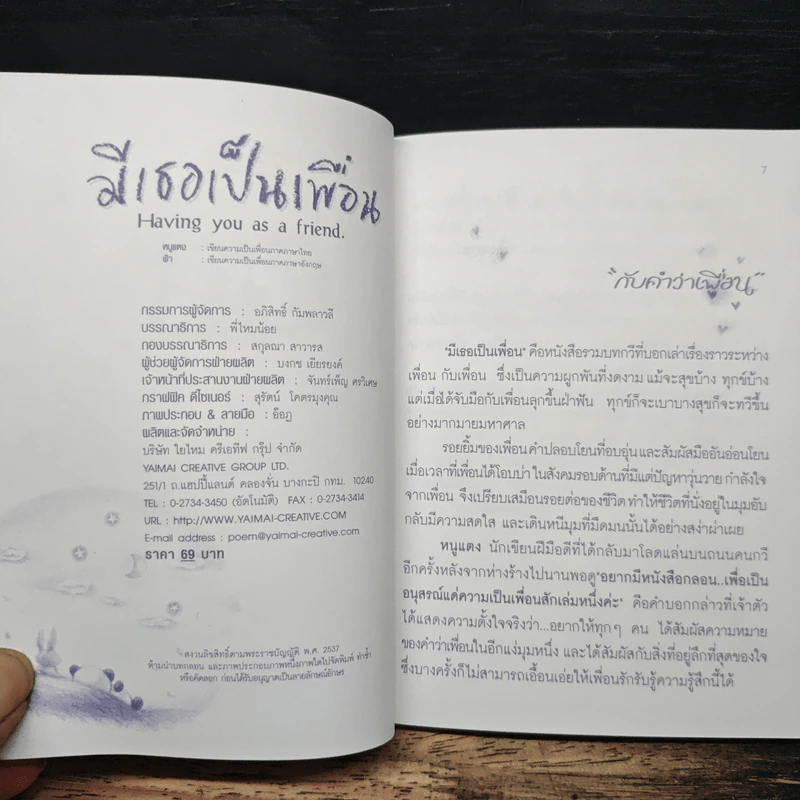 มีเธอเป็นเพื่อน
Having you as a friend.
หนูแตง : เขียนความเป็นเพื่อนภาคภาษาไทย
ฟ้า : เขียนความเป็นเพื่อนภาคภาษาอังกฤษ
กรรมการผู้จัดการ : อภิสิทธิ์ กัมพลาวลี
บรรณาธิการ : พี่ไหมน้อย
กองบรรณาธิการ : สกุลณา สาวารส
ผู้ช่วยผู้จัดการฝ่ายผลิต : บงกช เยียรยงค์
เจ้าหน้าที่ประสานงานฝ่ายผลิต : จันทร์เพ็ญ ศรวิเศษ
กราฟฟิค ดีไซเนอร์ : สุรัตน์ โคตรมุงคุณ
ภาพประกอบ & ลายมือ : อ๊อฎ
ผลิตและจัดจำหน่าย :
บริษัท ใยไหม ครีเอทีฟ กรุ๊ป จำกัด
YAIMAI CREATIVE GROUP LTD.
251/1 ถ.แฮปปี้แลนด์ คลองจั่น บางกะปิ กทม. 10240
TEL : 0-2734-3450 (อัตโนมัติ) FAX : 0-2734-3414
URL : http://WWW.YAIMAI-CREATIVE.COM
E-mail address : poem@yaimai-creative.com
ราคา 69 บาท
สงวนลิขสิทธิ์ตามพระราชบัญญัติ พ.ศ. 2537
ห้ามนำบทกลอน และภาพประกอบภาพหนึ่งภาพใดไปจัดพิมพ์ ทำซ้ำ
หรือคัดลอก ก่อนได้รับอนุญาตเป็นลายลักษณ์อักษร
7
"กับคำว่าเพื่อน"
"มีเธอเป็นเพื่อน" คือหนังสือรวมบทกวีที่บอกเล่าเรื่องราวระหว่าง
เพื่อน กับเพื่อน ซึ่งเป็นความผูกพันที่งดงาม แม้จะสุขบ้าง ทุกข์บ้าง
แต่เมื่อได้จับมือกับเพื่อนลุกขึ้นฝ่าฟัน ทุกข์ก็จะเบาบางสุขก็จะทวีขึ้น
อย่างมากมายมหาศาล
รอยยิ้มของเพื่อน คำปลอบโยนที่อบอุ่น และสัมผัสมืออันอ่อนโยน
เมื่อเวลาที่เพื่อนได้โอบบ่า ในสังคมรอบด้านที่มีแต่ปัญหาวุ่นวาย กำลังใจ
จากเพื่อน จึงเปรียบเสมือนรอยต่อของชีวิต ทำให้ชีวิตที่นั่งอยู่ในมุมอับ
กลับมีความสดใส และเดินหนีมุมที่มืดมนนั้นได้อย่างสง่าผ่าเผย
หนูแตง นักเขียนฝีมือดีที่ได้กลับมาโลดแล่นบนถนนคนกวี
อีกครั้งหลังจากห่างร้างไปนานพอดู"อยากมีหนังสือกลอน..เพื่อเป็น
อนุสรณ์แด่ความเป็นเพื่อนสักเล่มหนึ่งค่ะ" คือคำบอกกล่าวที่เจ้าตัว
ได้แสดงความตั้งใจจริงว่า...อยากให้ทุกๆ คน ได้สัมผัสความหมาย
ของคำว่าเพื่อนในอีกแง่มุมหนึ่ง และได้สัมผัสกับสิ่งที่อยู่ลึกที่สุดของใจ
ซึ่งบางครั้งก็ไม่สามารถเอื้อนเอ่ยให้เพื่อนรักรับรู้ความรู้สึกนี้ได้